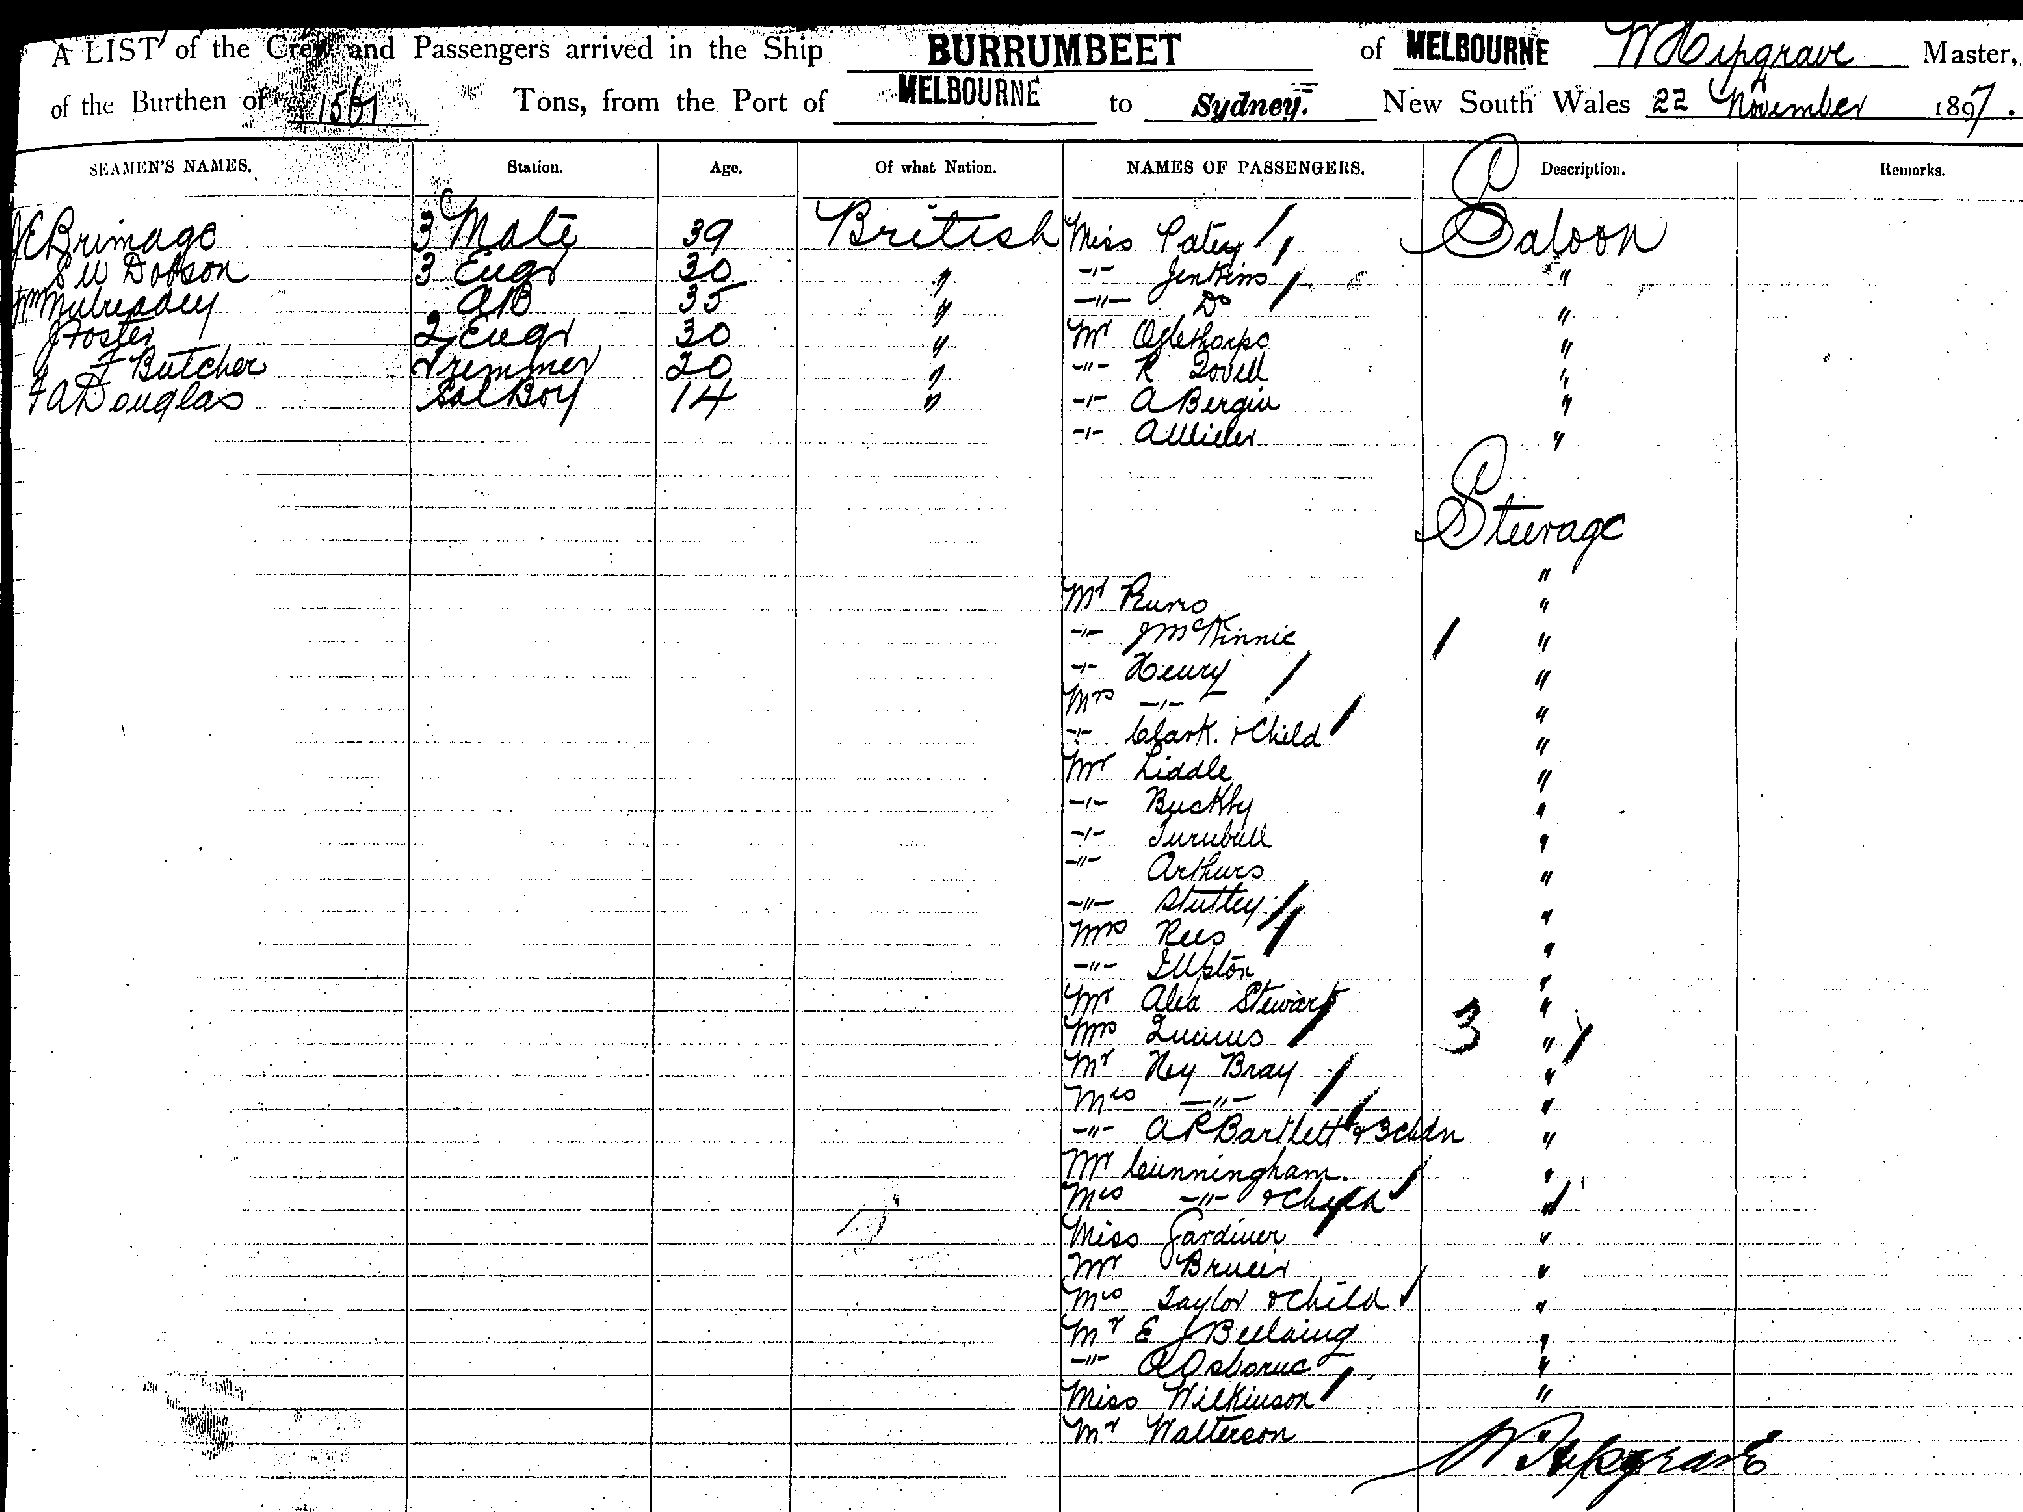 A LIST of the Crew and Passengers arrived in the Ship BURRUMBEET of MELBOURNE W Hipgrave Master,
of the Burthen of 1561 Tons, from the Port of MELBOURNE to Sydney. New South Wales 22 November 1897.
SEAMEN'S NAMES. Station. Age. Of what Nation. NAMES OF PASSENGERS. Description. Remarks.
JE Brimage 3 Mate 39 British Miss Patey Saloon
S W Dobson 3 Engr 30 " -"- Jenkins "
Wm Mulready AB 35 " -"- Do "
J Foster 2 Engr 30 " Mr Oglethorpe "
J F Butcher Trimmer 20 " -"- R Lovell "
F A Douglas Sal Boy 14 " -"- A Bergin "
-"- A Miller "
Steerage
"
Mr "
-"- J McKinnie "
-"- Henry "
Mrs -"- "
-"- Clark & Child "
Mr Liddle "
-"- Buckby "
-"- Turnbull "
-"- Arthurs "
-"- Stuttey "
Mrs Rees "
-"- Upton "
Mr Alex Stewart "
Mrs 3 "
Mr Hy Bray "
Mrs -"- "
-"- A P Bartlett & 3 chdn "
Mr Cunningham "
Mrs -"- & Child "
Miss Gardiner "
Mr "
Mrs Taylor & Child "
Mr E J "
-"- A Osborne "
Miss Wilkinson "
Mr Watterson
W Hipgrave